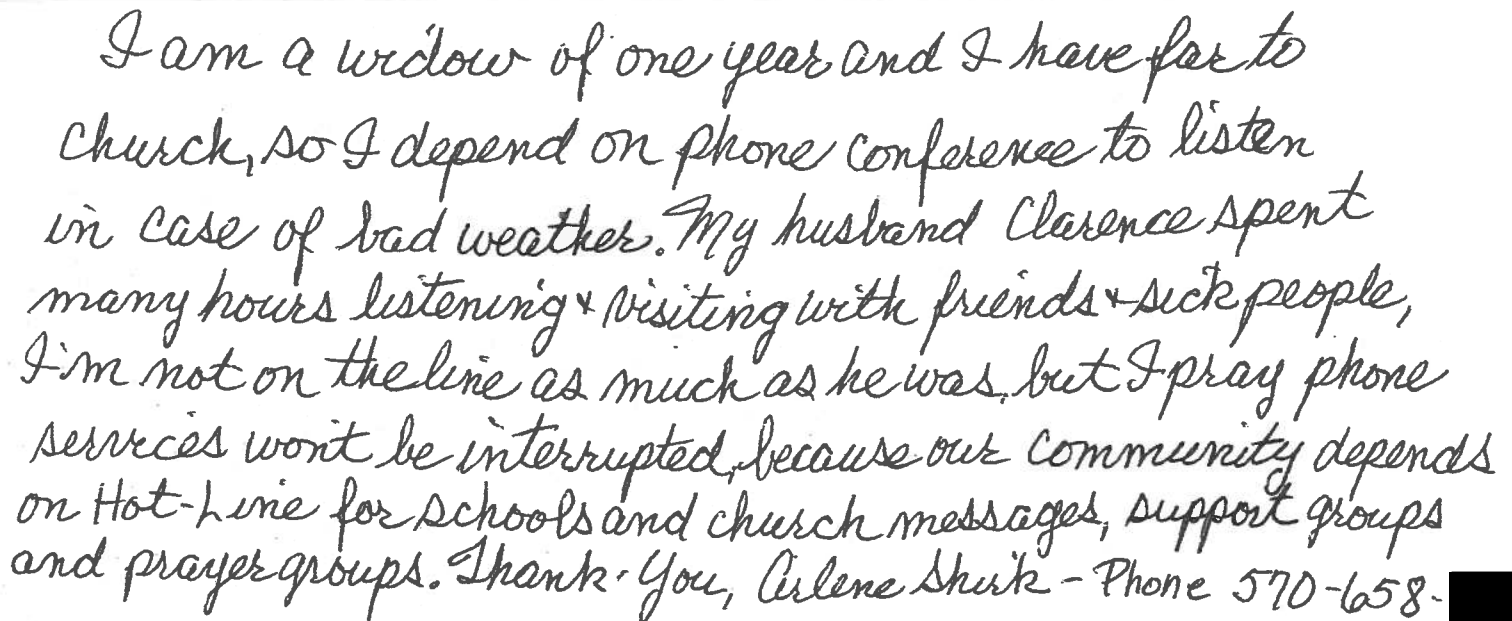 I am a widow of one year and I have far to
church, so I depend on phone conference to listen
in case of bad weather. My husband Clarence spent
many hours listening & visiting with friends & sick people,
I'm not on the line as much as he was, but I pray phone
services won't be interrupted, because our community depends
on Hot-Line for schools and church messages, support groups
and prayer groups. Thank-You, Arlene Shirk - Phone 570-658-